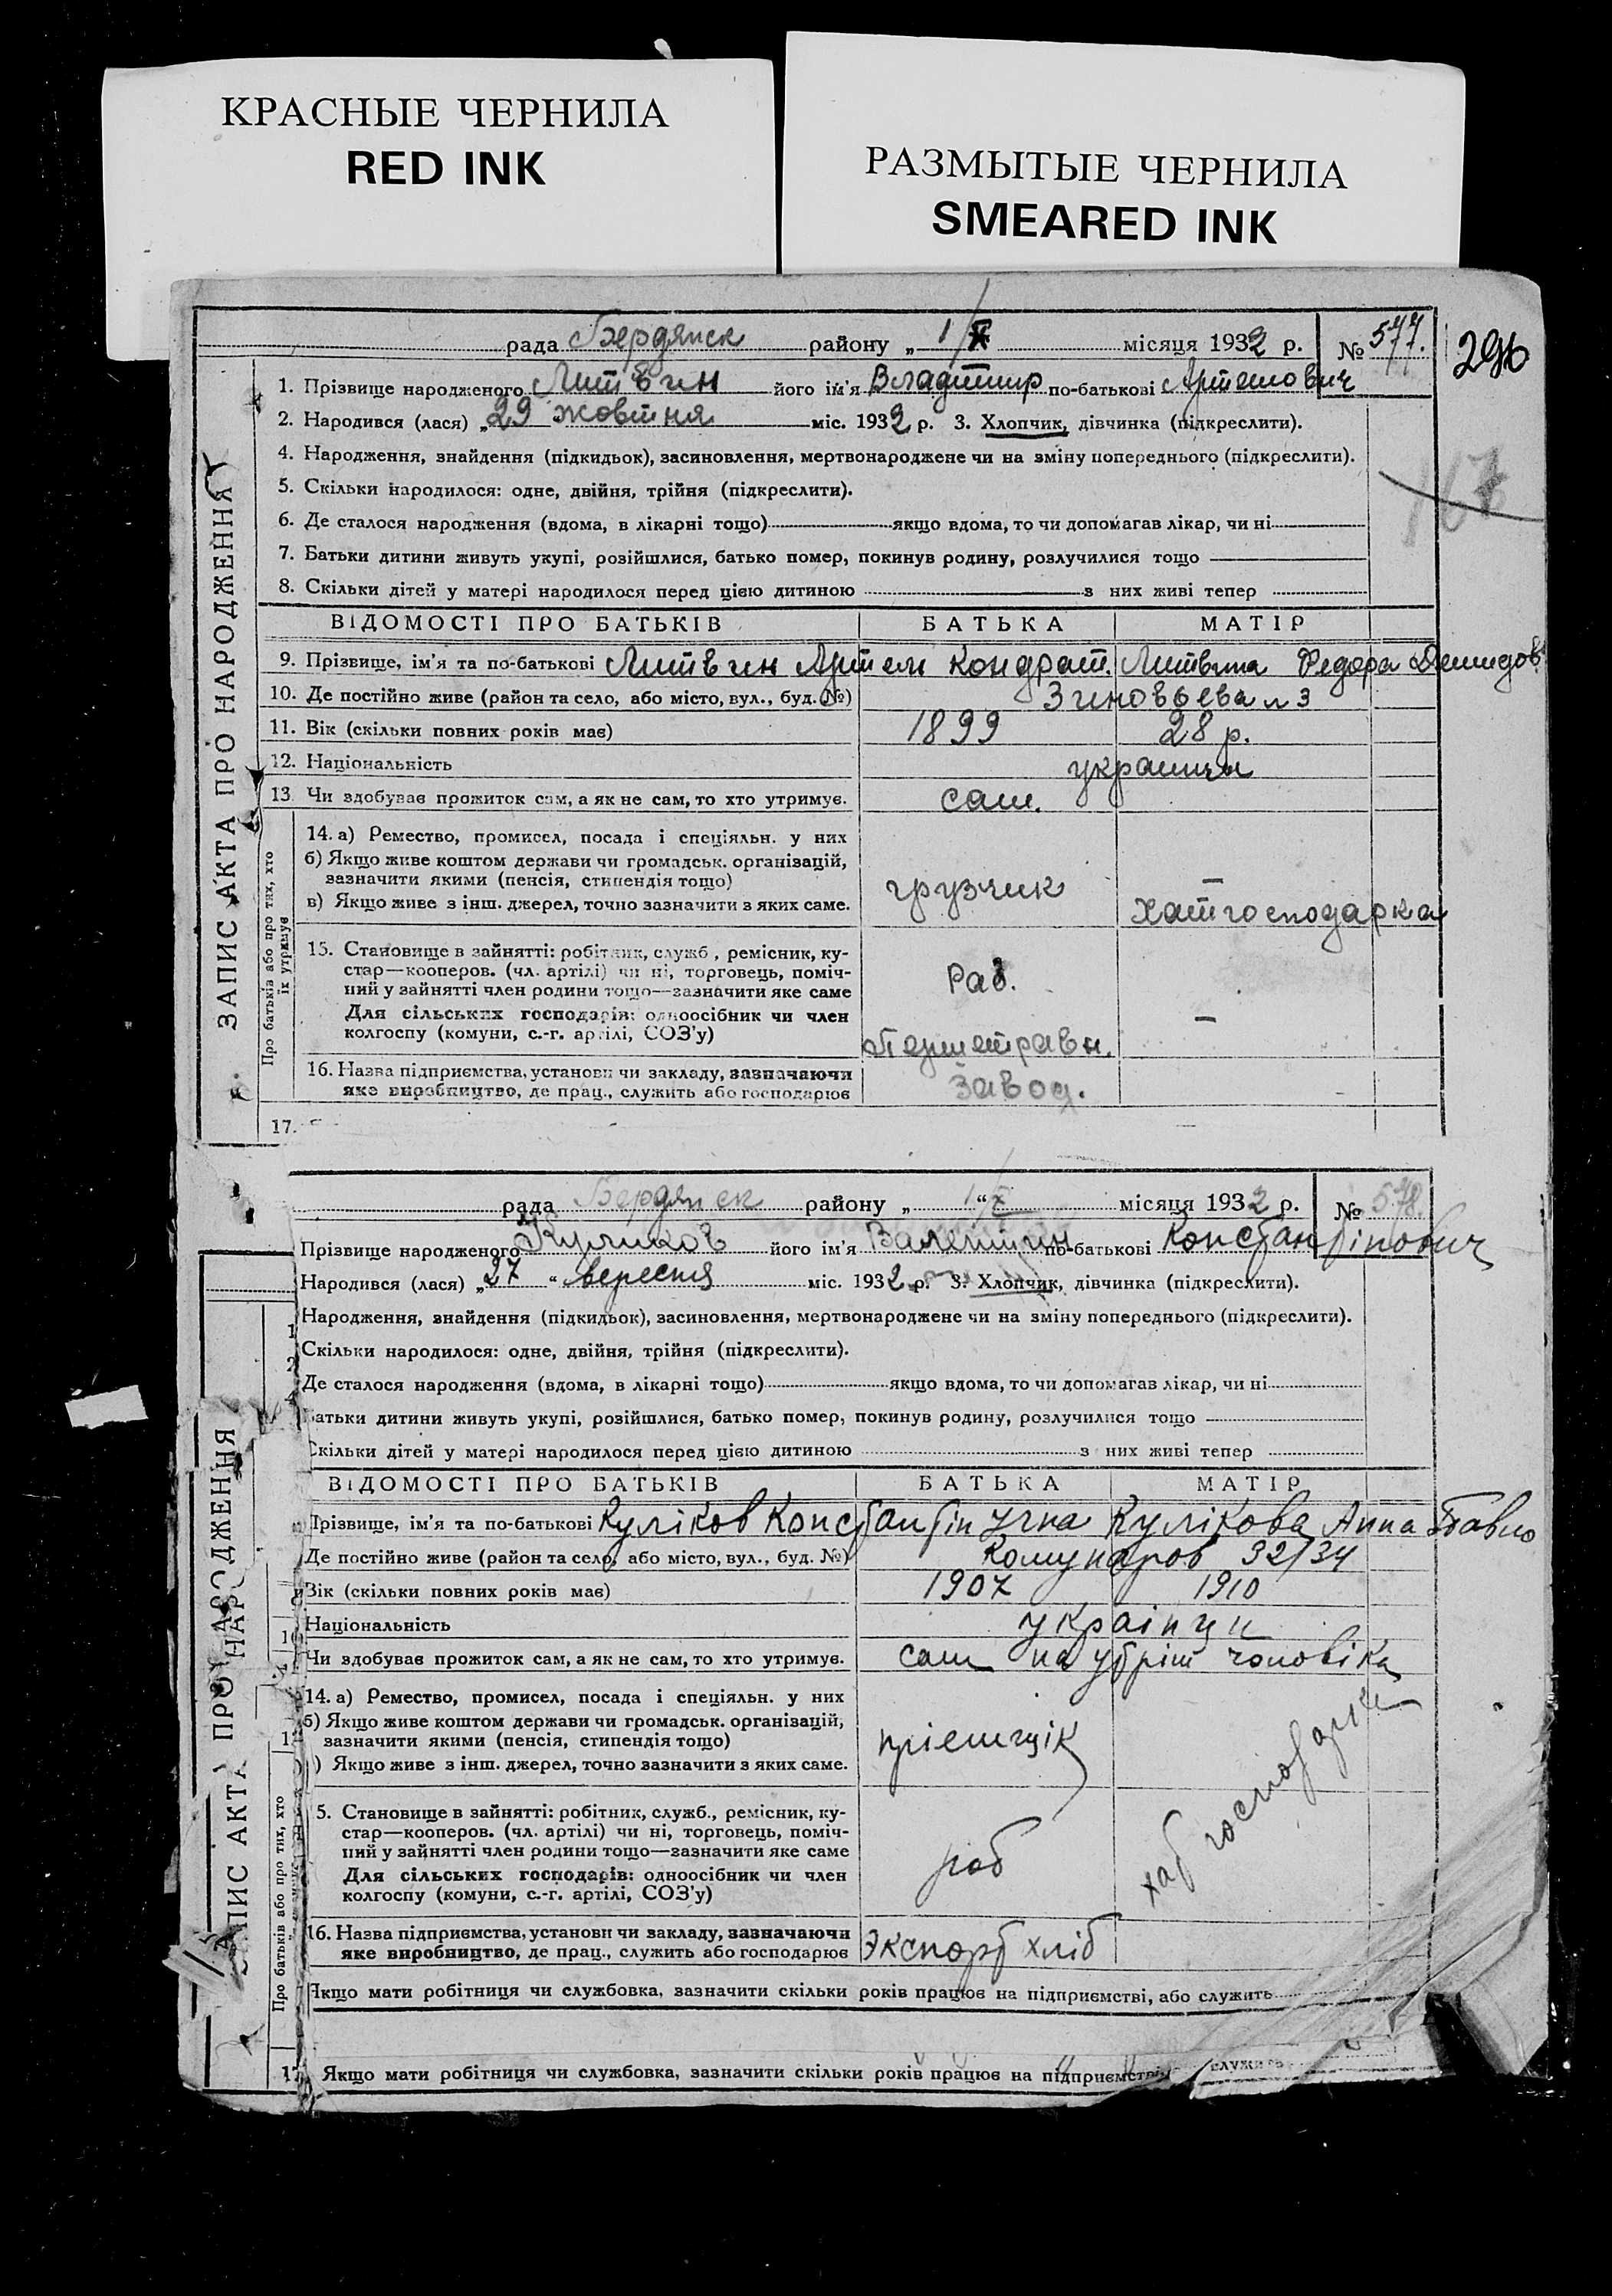 КРАСНЫЕ ЧЕРНИЛА
RED INK
РАЗМЫТЫЕ ЧЕРНИЛА
SMEARED INK
рада Бердянск району „ 1/X місяця 1932 р. № 577.
296
1. Прізвище народженого Литвин його ім'я Владимир по-батькові Артемович
2. Народився (лася) „29 жовтня міс. 1932 р. 3. Хлопчик, дівчинка (підкреслити).
4. Народження, знайдення (підкидьок), засиновлення, мертвонароджене чи на зміну попереднього (підкреслити).
5. Скільки народилося: одне, двійня, трійня (підкреслити).
167
6. Де сталося народження (вдома, в лікарні тощо) якщо вдома, то чи допомагав лікар, чи ні
7. Батьки дитини живуть укупі, розійшлися, батько помер, покинув родину, розлучилися тощо
8. Скільки дітей у матері народилося перед цією дитиною з них живі тепер
ЗАПИС АКТА ПРО НАРОДЖЕННЯ
ВІДОМОСТІ ПРО БАТЬКІВ БАТЬКА МАТІР
9. Прізвище, ім'я та по-батькові Литвин Артем Кондрат. Литвина Федора Демидов
10. Де постійно живе (район та село, або місто, вул., буд. №) Зиновьева 3
11. Вік (скільки повних років має) 1899 28 р.
12. Національність украинци
13 Чи здобуває прожиток сам, а як не сам, то хто утримує. сам.
Про батьків або про тих, хто їх утримує
14. а) Ремество, промисел, посада і спеціяльн. у них
б) Якщо живе коштом держави чи громадськ. організацій,
зазначити якими (пенсія, стипендія тощо)
в) Якщо живе з інш. джерел, точно зазначити з яких саме. грузчик — хатгосподарка
15. Становище в зайнятті: робітник, служб., ремісник, ку-
стар—кооперов. (чл. артілі) чи ні, торговець, поміч-
ний у зайнятті член родини тощо—зазначити яке саме Раб.
Для сільських господарів: одноосібник чи член —
колгоспу (комуни, с.-г. артілі, СОЗ'у)
16. Назва підприємства, установи чи закладу, зазначаючи
яке виробництво, де прац., служить або господарює завод.
17.
рада Бердянск району „ 1 “ X місяця 1932 р. № 578.
Прізвище народженого Куликов його ім'я Валентин по-батькові Константінович
Народився (лася) „27 “ вересня міс. 1932 р. 3. Хлопчик, дівчинка (підкреслити).
Народження, знайдення (підкидьок), засиновлення, мертвонароджене чи на зміну попереднього (підкреслити).
Скільки народилося: одне, двійня, трійня (підкреслити).
Де сталося народження (вдома, в лікарні тощо) якщо вдома, то чи допомагав лікар, чи ні
Батьки дитини живуть укупі, розійшлися, батько помер, покинув родину, розлучилися тощо
Скільки дітей у матері народилося перед цією дитиною з них живі тепер
ВІДОМОСТІ ПРО БАТЬКІВ БАТЬКА МАТІР
Прізвище, ім'я та по-батькові Куліков Константін Кулікова Анна Павло
Де постійно живе (район та село, або місто, вул., буд. №) Комунаров 32/34
Вік (скільки повних років має) 1907 1910
Національність українци
Чи здобуває прожиток сам, а як не сам, то хто утримує. сам на утрім чоловіка
Про батьків або про тих, хто
14. а) Ремество, промисел, посада і спеціяльн. у них
б) Якщо живе коштом держави чи громадськ. організацій,
зазначити якими (пенсія, стипендія тощо) пріємщік
) Якщо живе з інш. джерел, точно зазначити з яких саме. хат господарка
5. Становище в зайнятті: робітник, служб., ремісник, ку-
стар—кооперов. (чл. артілі) чи ні, торговець, поміч-
ний у зайнятті член родини тощо—зазначити яке саме роб
Для сільських господарів: одноосібник чи член
колгоспу (комуни, с.-г. артілі, СОЗ'у)
16. Назва підприємства, установи чи закладу, зазначаючи
яке виробництво, де прац., служить або господарює Экспорт хліб
Якщо мати робітниця чи службовка, зазначити скільки років працює на підприємстві, або служить
17 Якщо мати робітниця чи службовка, зазначити скільки років працює на підприємстві служить